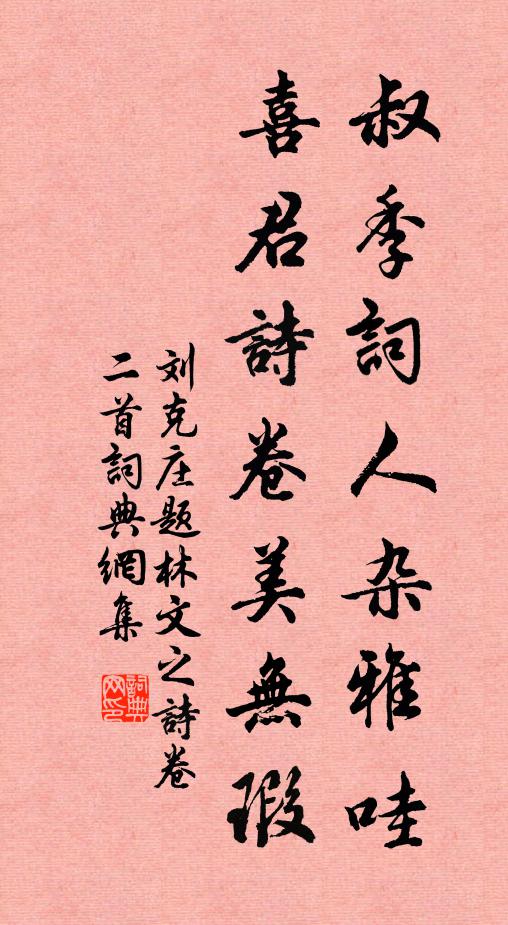 叔季詞人杂雅哇
喜君詩卷美無瑕
刘克庄题林文之詩卷
二首詞典網集
詞典
网印